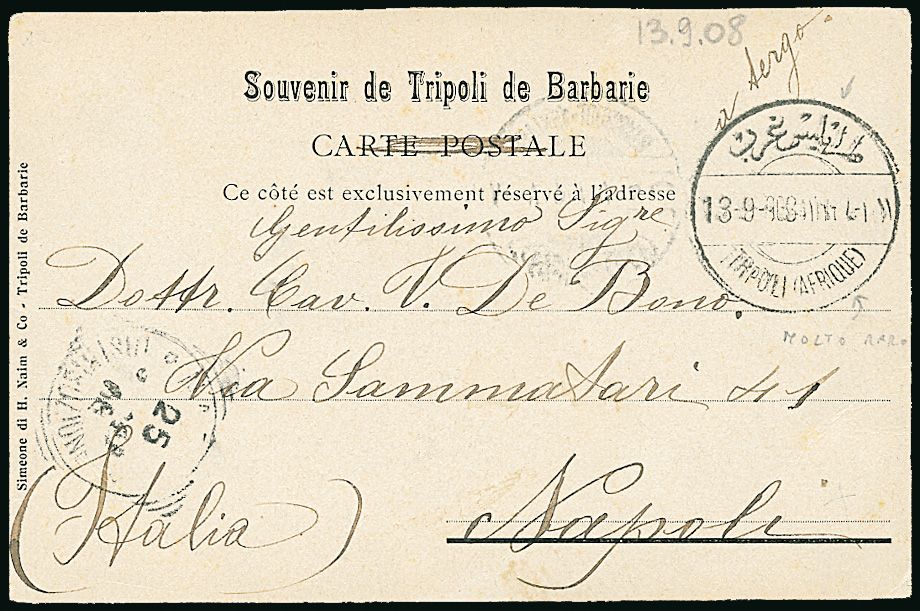 13.9.08
a tergo.
Souvenir de Tripoli de Barbarie
CARTE POSTALE
Ce côté est exclusivement réservé à l'adresse
طرابلس غرب
13-9-908
TRIPOLI (AFRIQUE)
MOLTO RARO
Gentilissimo Sigre
Dottr. Cav. V. De Bono.
Via Sammatari 41
25
(Italia)
Napoli
Simeone di H. Naim & Co - Tripoli de Barbarie